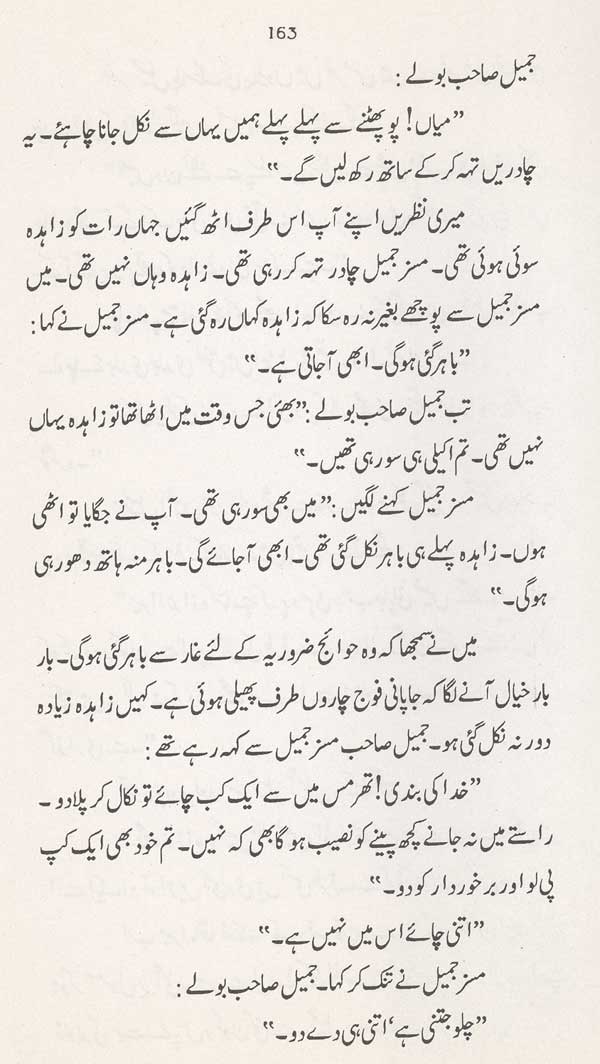 163
جمیل صاحب بولے :
”میاں! پو پھٹنے سے پہلے پہلے ہمیں یہاں سے نکل جانا چاہئے۔ یہ
چادریں تہہ کر کے ساتھ رکھ لیں گے۔“
میری نظریں اپنے آپ اس طرف اٹھ گئیں جہاں رات کو زاہدہ
سوئی ہوئی تھی۔ مسز جمیل چادر تہہ کر رہی تھی۔ زاہدہ وہاں نہیں تھی۔ میں
مسز جمیل سے پوچھے بغیر نہ رہ سکا کہ زاہدہ کہاں رہ گئی ہے۔ مسز جمیل نے کہا :
”باہر گئی ہوگی۔ ابھی آ جاتی ہے۔“
تب جمیل صاحب بولے : ”بھئی جس وقت میں اٹھا تھا تو زاہدہ یہاں
نہیں تھی۔ تم اکیلی ہی سو رہی تھیں۔“
مسز جمیل کہنے لگیں : ”میں بھی سو رہی تھی۔ آپ نے جگایا تو اٹھی
ہوں۔ زاہدہ پہلے ہی باہر نکل گئی تھی۔ ابھی آ جائے گی۔ باہر منہ ہاتھ دھو رہی
ہوگی۔“
میں نے سمجھا کہ وہ حوائج ضروریہ کے لئے غار سے باہر گئی ہوگی۔ بار
بار خیال آنے لگا کہ جاپانی فوج چاروں طرف پھیلی ہوئی ہے۔ کہیں زاہدہ زیادہ
دور نہ نکل گئی ہو۔ جمیل صاحب مسز جمیل سے کہہ رہے تھے :
”خدا کی بندی! تھرمس میں سے ایک کب چائے تو نکال کر پلا دو۔
راستے میں نہ جانے کچھ پینے کو نصیب ہو گا بھی کہ نہیں۔ تم خود بھی ایک کپ
پی لو اور برخوردار کو دو۔“
”اتنی چائے اس میں نہیں ہے۔“
مسز جمیل نے تنک کر کہا۔ جمیل صاحب بولے :
”چلو جتنی ہے‘ اتنی ہی دے دو۔“